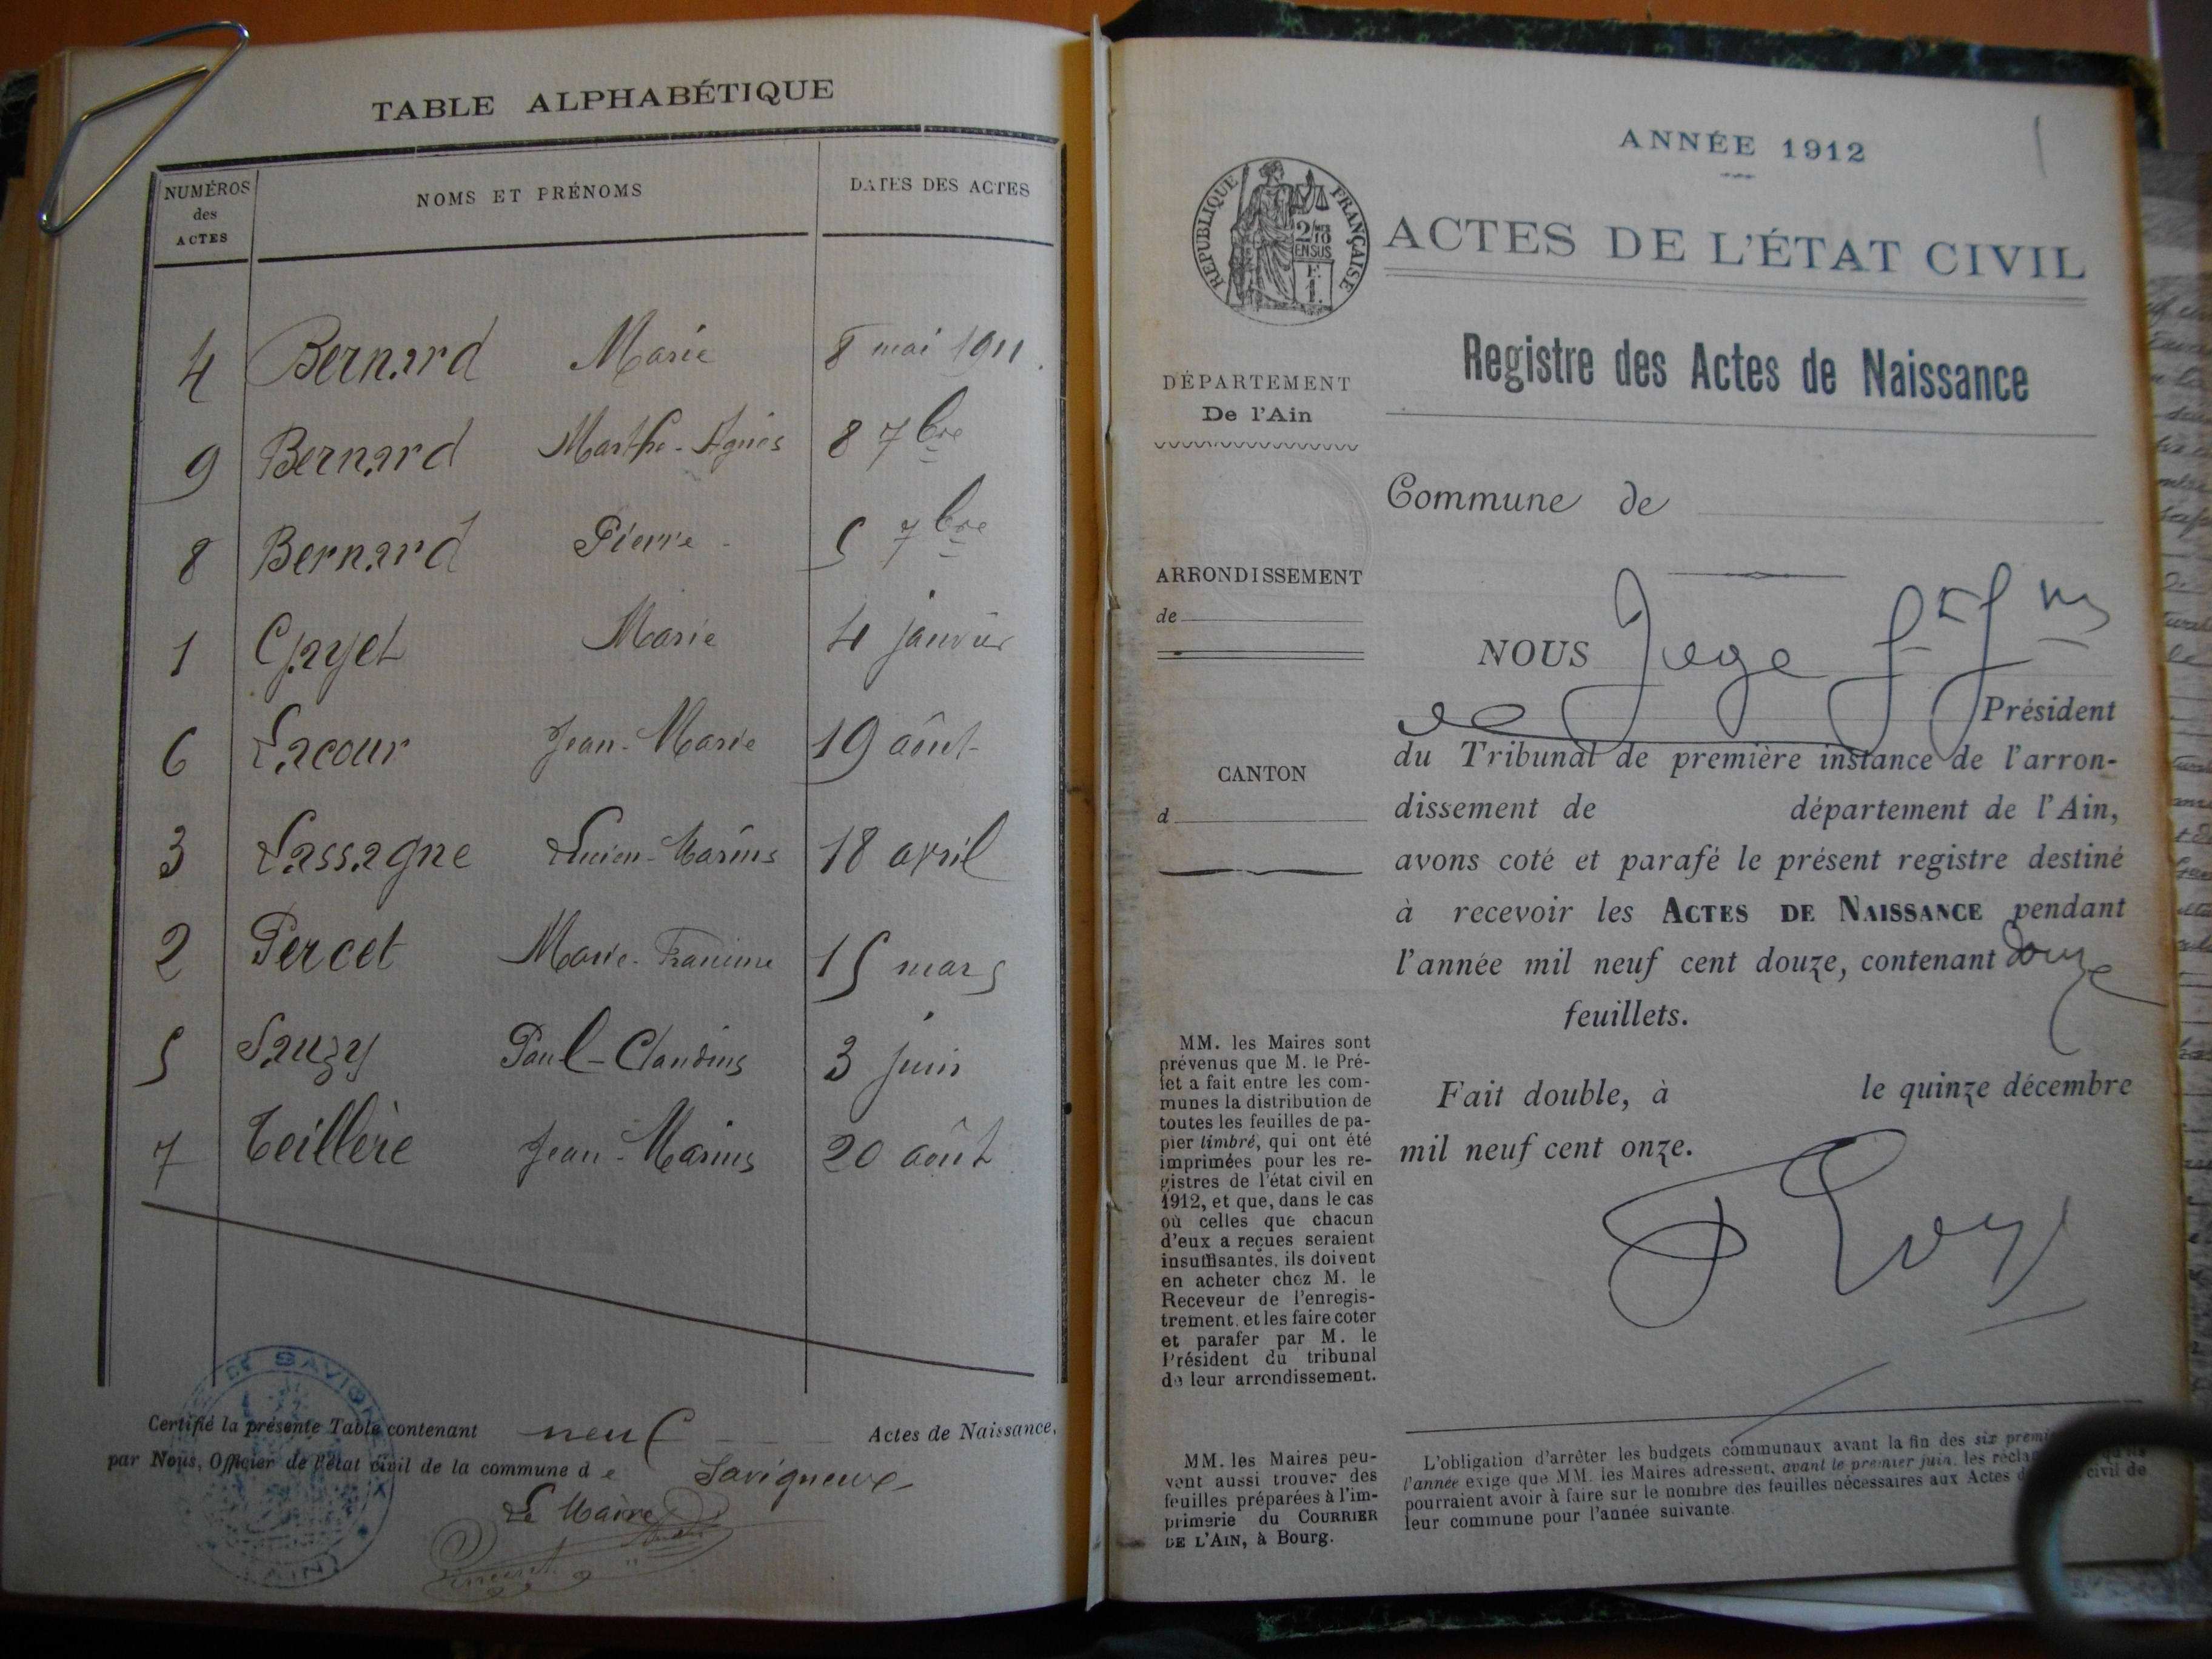 TABLE ALPHABÉTIQUE
NUMÉROS des ACTES
NOMS ET PRÉNOMS
DATES DES ACTES
4 Bernard Marie 8 mai 1911.
9 Bernard Marthe-Agnès 8 7bre
8 Bernard Pierre 5 7bre
1 Gayet Marie 4 janvier
6 Lacour Jean-Marie 19 août
3 Lassagne Lucien-Marius 18 avril
2 Percet Marie-Francine 15 mars
5 Sauzy Paul-Claudius 3 juin
7 Teillère Jean-Marius 20 août
Certifié la présente Table contenant neuf Actes de Naissance,
par Nous, Officier de l'état civil de la commune de Savigneux
Le Maire
Vincent
ANNÉE 1912
1
RÉPUBLIQUE FRANÇAISE
ACTES DE L'ÉTAT CIVIL
Registre des Actes de Naissance
DÉPARTEMENT
De l'Ain
Commune de
ARRONDISSEMENT
de
CANTON
d
NOUS Juge
Président
du Tribunal de première instance de l'arron-
dissement de département de l'Ain,
avons coté et parafé le présent registre destiné
à recevoir les ACTES DE NAISSANCE pendant
l'année mil neuf cent douze, contenant douze
feuillets.
Fait double, à le quinze décembre
mil neuf cent onze.
MM. les Maires sont
prévenus que M. le Pré-
fet a fait entre les com-
munes la distribution de
toutes les feuilles de pa-
pier timbré, qui ont été
imprimées pour les re-
gistres de l'état civil en
1912, et que, dans le cas
où celles que chacun
d'eux a reçues seraient
insuffisantes, ils doivent
en acheter chez M. le
Receveur de l'enregis-
trement, et les faire coter
et parafer par M. le
Président du tribunal
de leur arrondissement.
MM. les Maires peu-
vent aussi trouver des
feuilles préparées à l'im-
primerie du COURRIER
DE L'AIN, à Bourg.
L'obligation d'arrêter les budgets communaux avant la fin des six
l'année exige que MM. les Maires adressent, avant le premier juin, les
pourraient avoir à faire sur le nombre des feuilles nécessaires aux Actes civil de
leur commune pour l'année suivante.